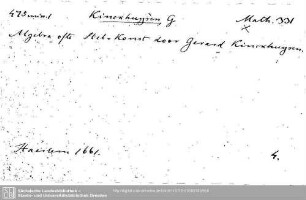 Kinckhuysen G. Math. 301
Algebra ofte Stel-Konst door Gerard Kinckhuysen.
Haerlem 1661. 4.
Sächsische Landesbibliothek -
Staats- und Universitätsbibliothek Dresden